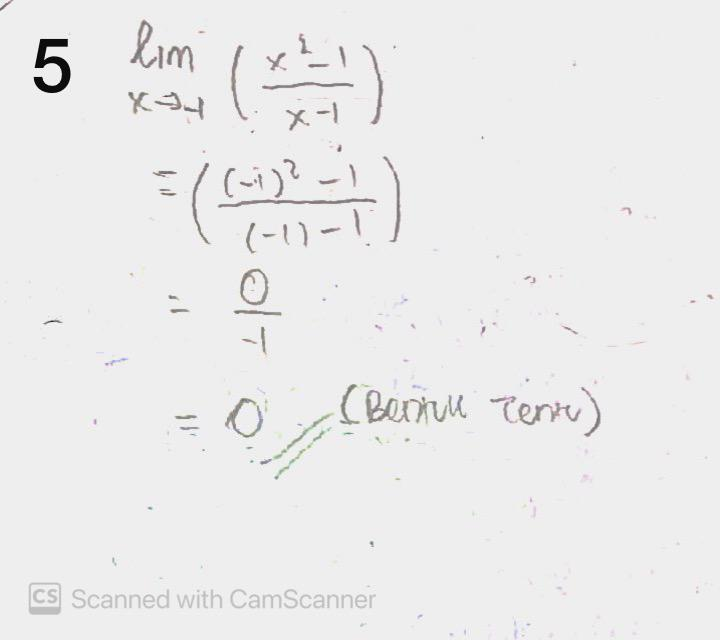 5 lim x→-1 (x²-1 / x-1)
= ((-1)²-1 / (-1)-1)
= 0 / -1
= 0 (Bentuk Tentu)
CS Scanned with CamScanner